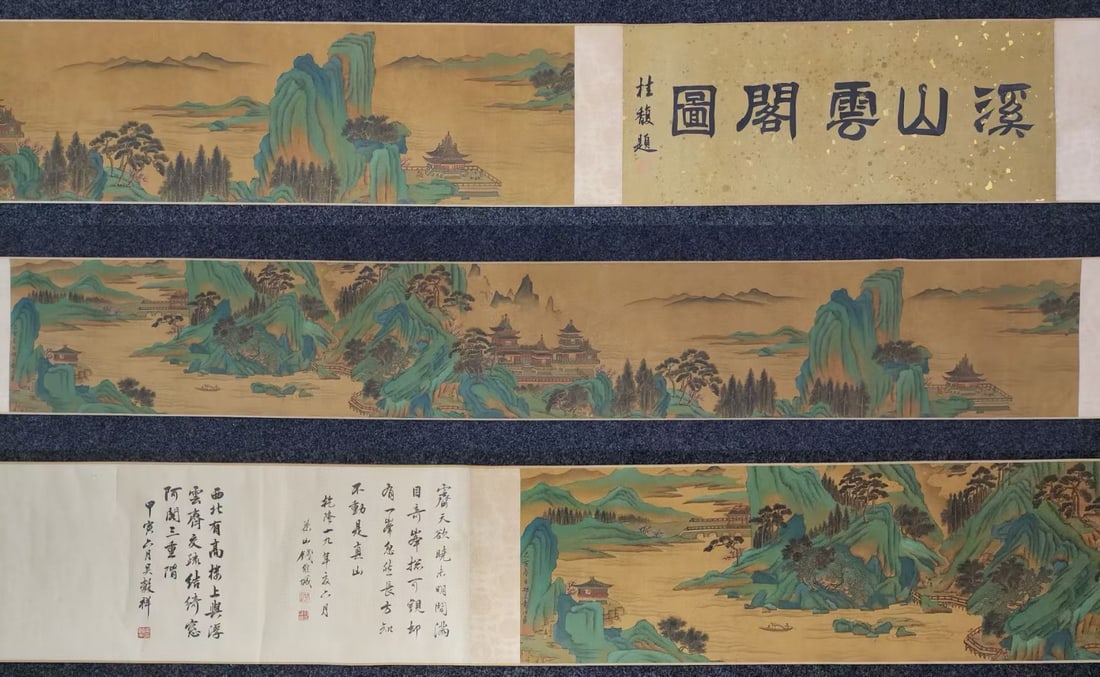 溪山雲閣圖
桂馥題
霽天欲曉未明間滿
目奇峯總可觀卻
有一峯忽然長方知
不動是真山
乾隆一九年亥六月
茶山錢維城
西北有高樓上與浮
雲齊交疏結綺窓
阿閣三重階
甲寅六月吳縠祥